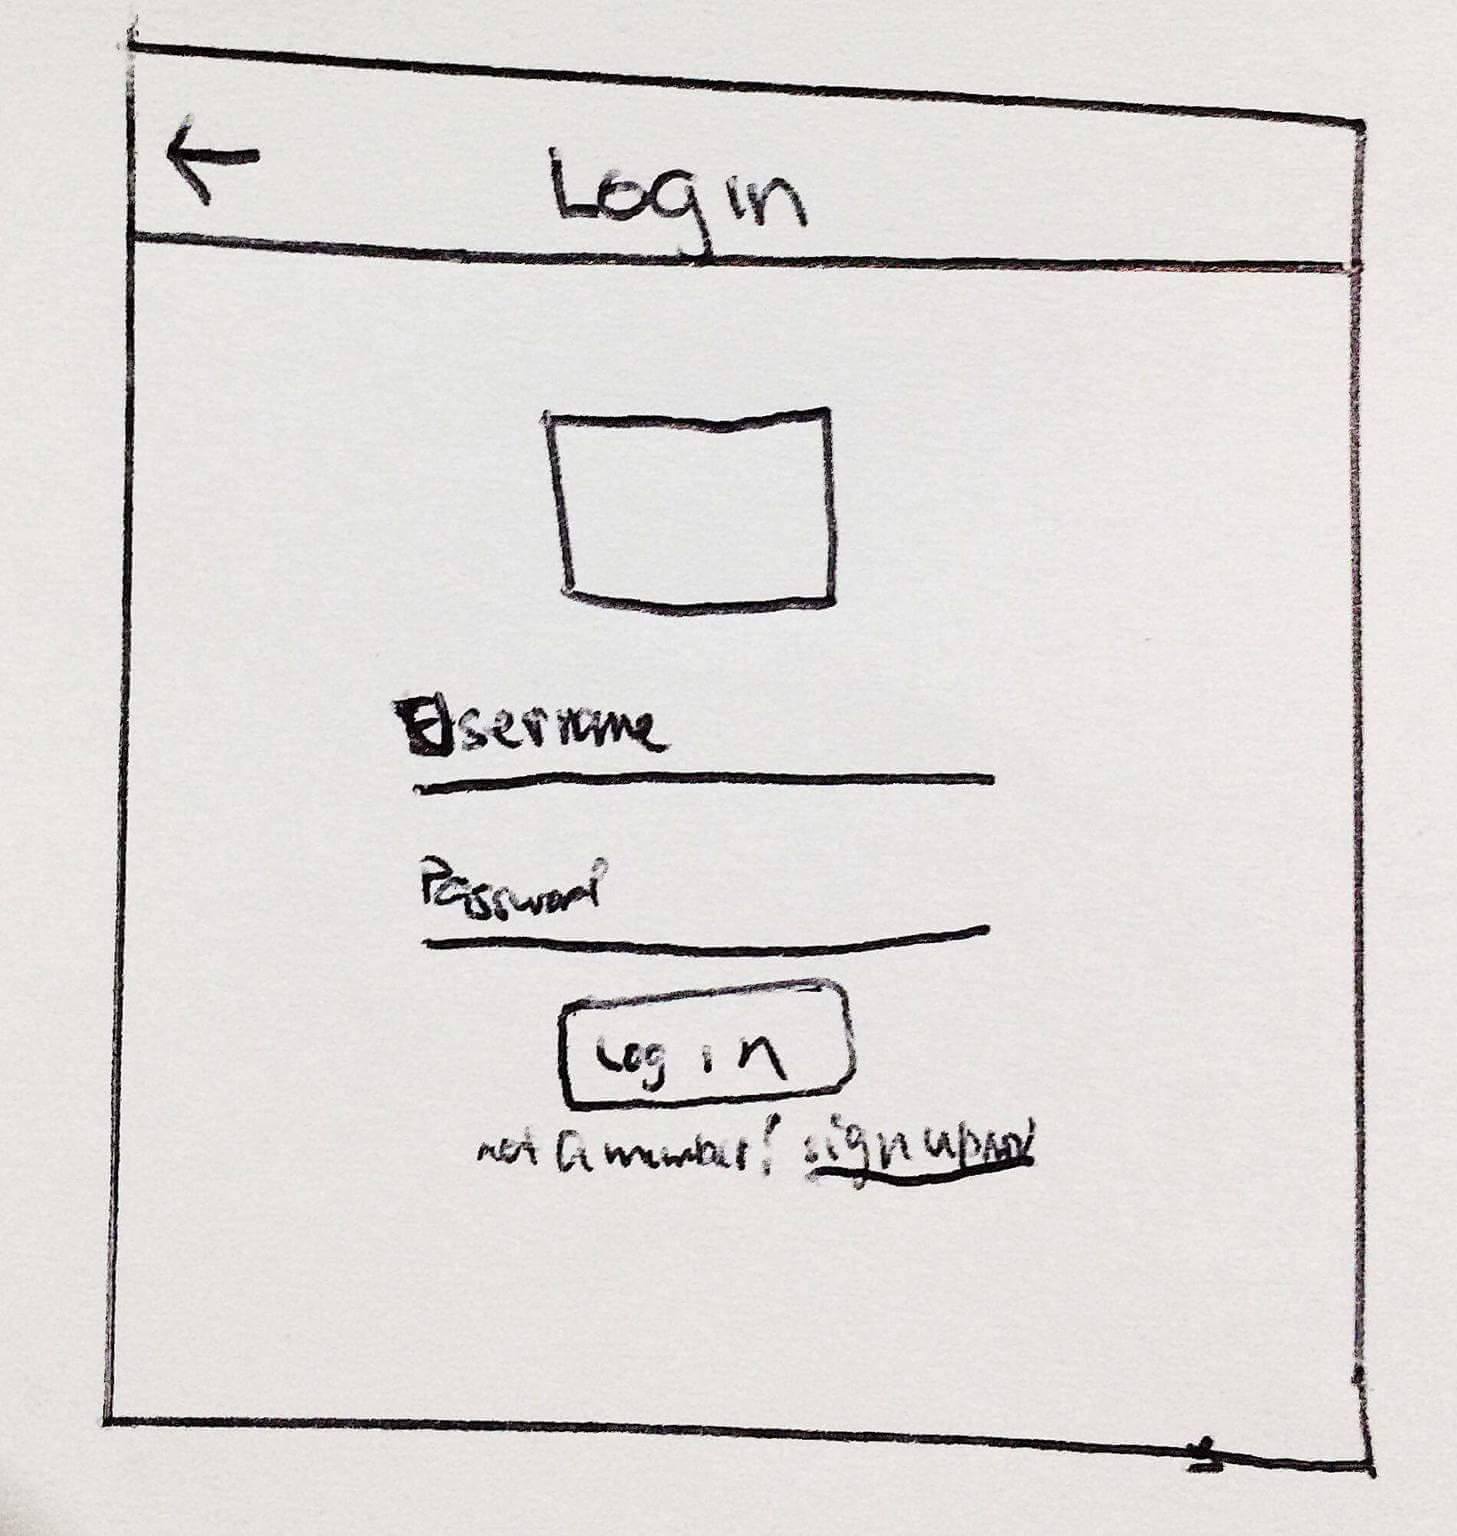 Log in
Username
Password
Log in
not a member? sign up now